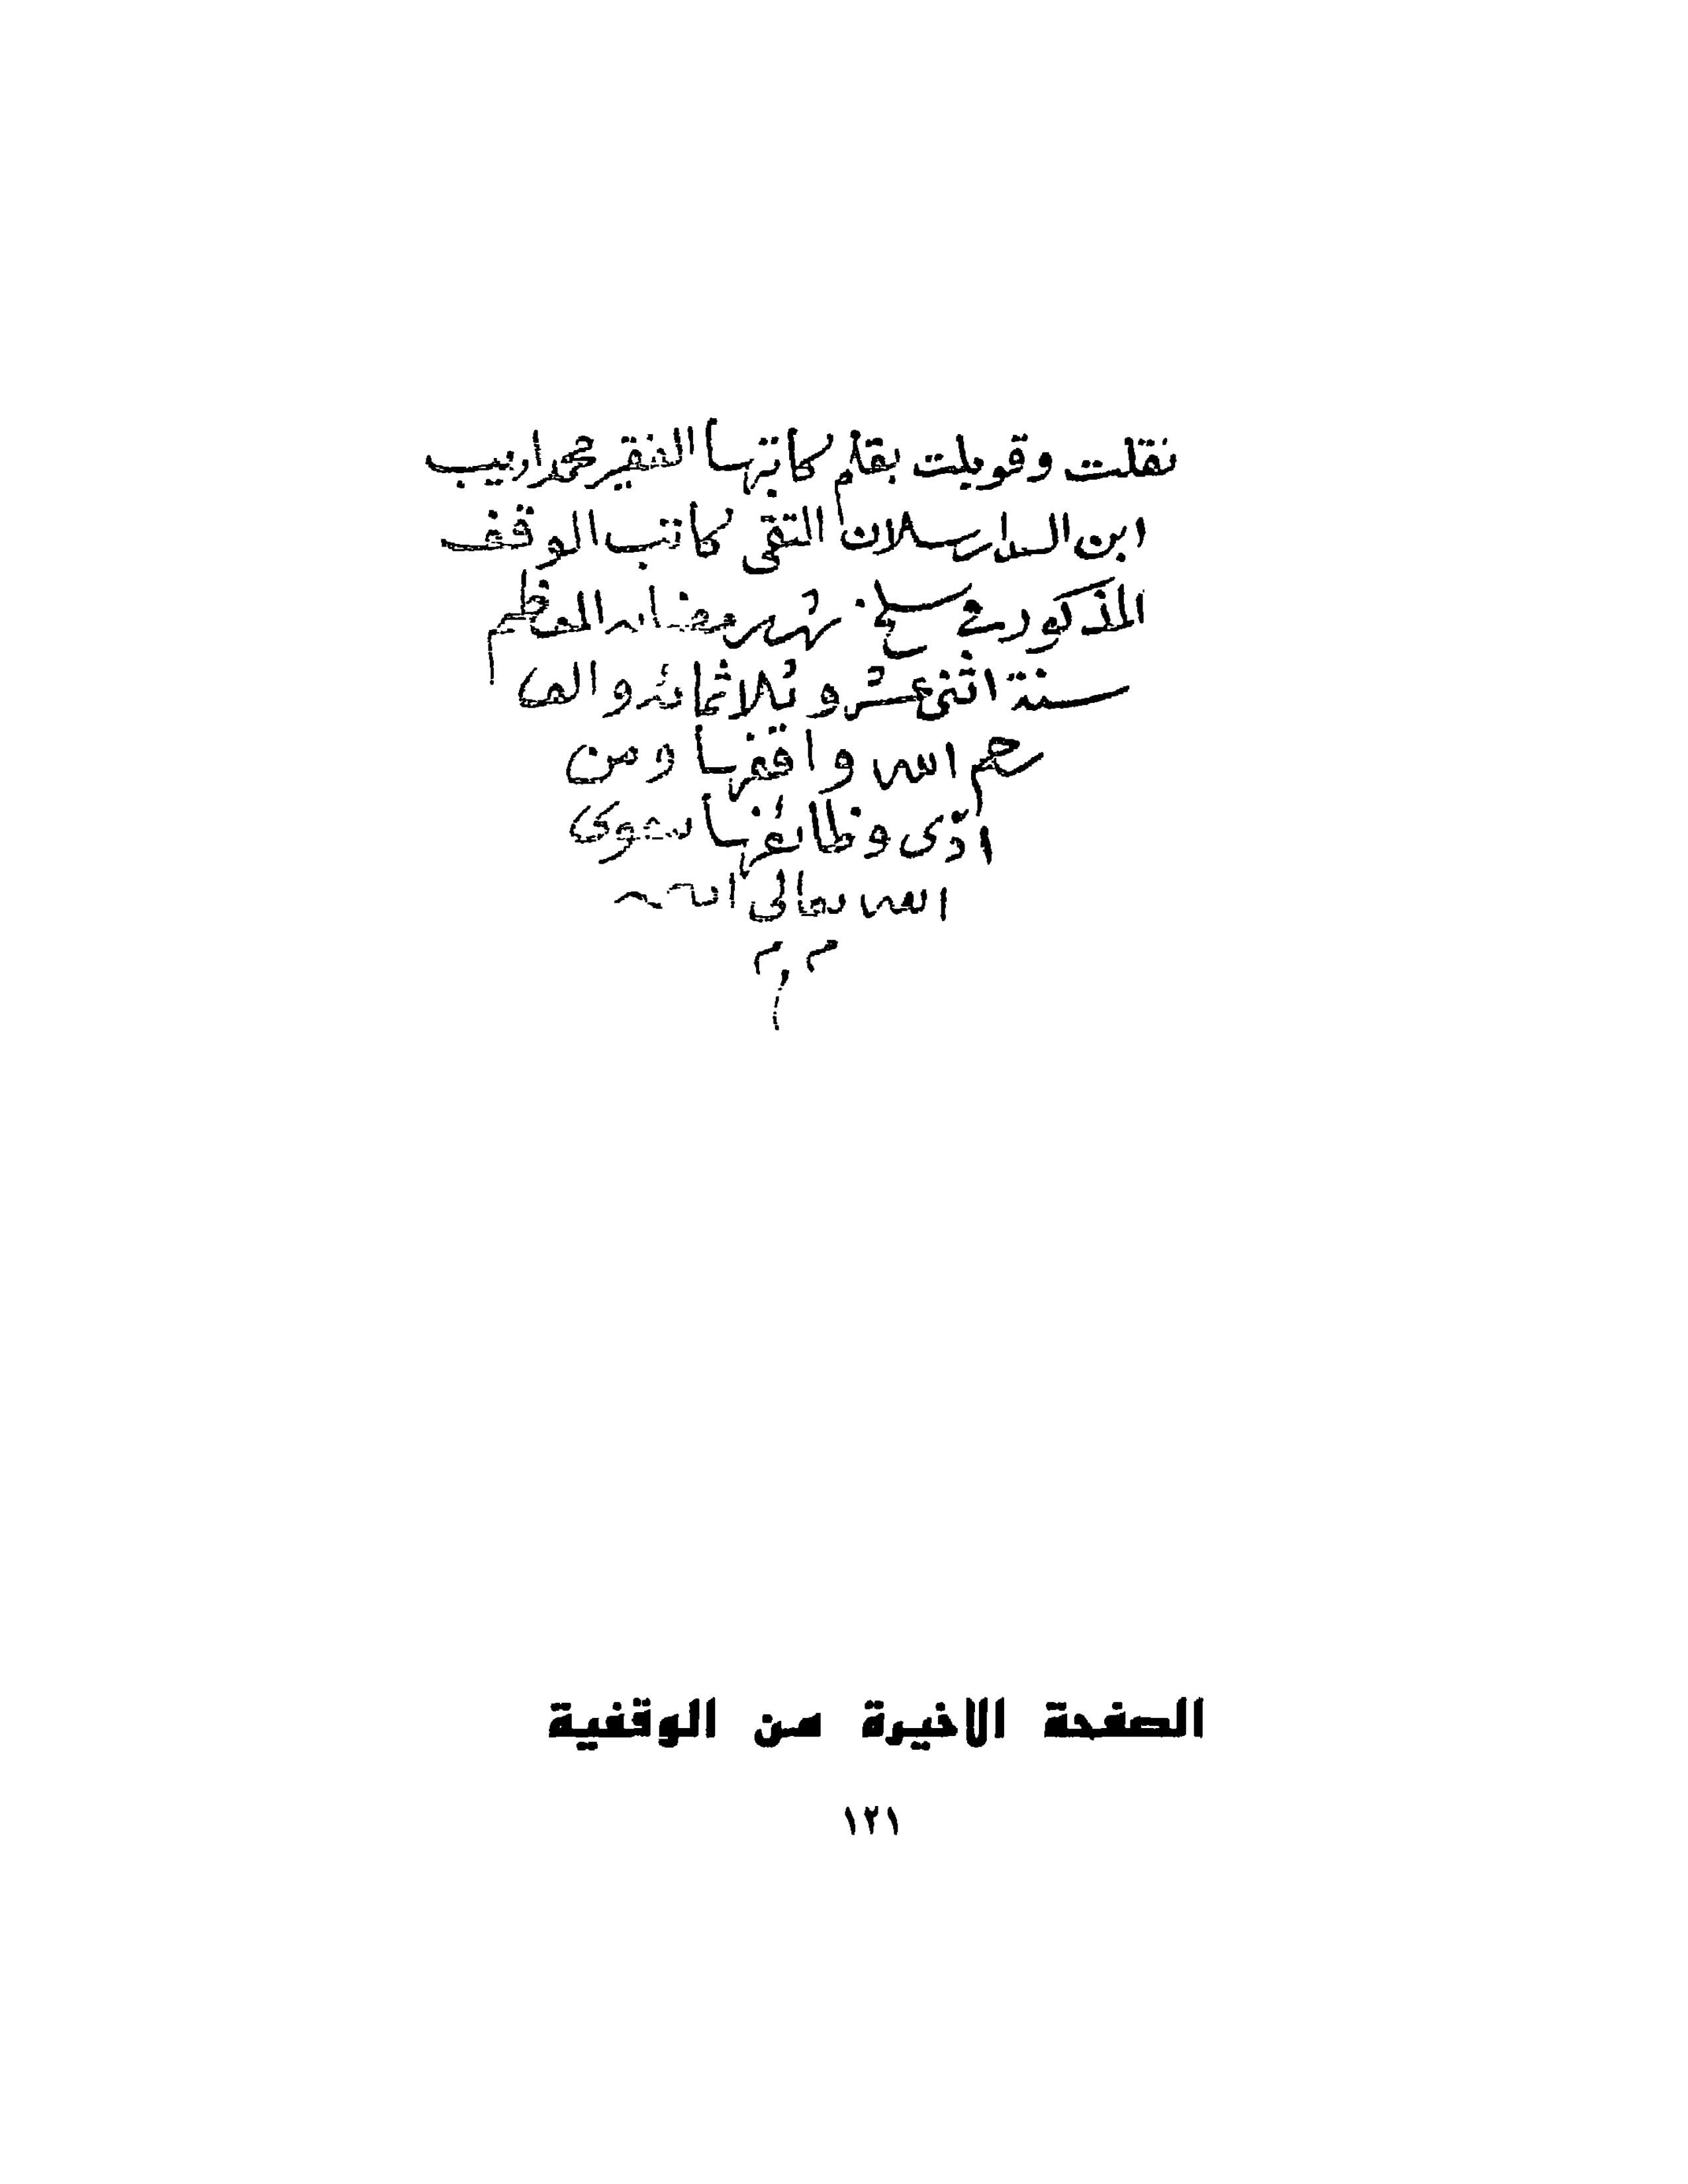 نقلت وقوبلت بقلم كاتبها الفقير محمد اديب
ابن السيد ارسلان التقي كاتب الوقف
المذكور في سلخ شهر رمضان المعظم
سنة اثنى عشر و ثلاثمائه والف
رحم الله واقفها ومن
ادّى وظائفها بتقوى
الله تعالى
الصفحة الاخيرة من الوقفية
١٢١